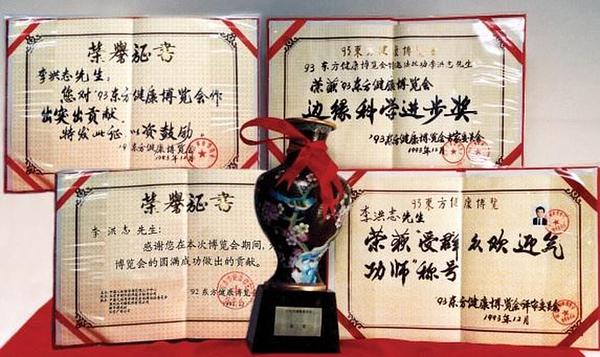 荣誉证书
李洪志先生:
您对'93东方健康博览会作
出突出贡献.
特发此证以资鼓励.
'93东方健康博览会
1993年12月
93东方健康博览会
荣获'93东方健康博览会
边缘科学进步奖
'93东方健康博览会评审委员会
1993年12月
荣誉证书
李洪志先生:
感谢您在本次博览会期间,
博览会的圆满成功做出的贡献.
'92东方健康博览会
93东方健康博览
李洪志先生
荣获"受群众欢迎气
功师"称号
'93东方健康博览会评审委员会
1993年12月